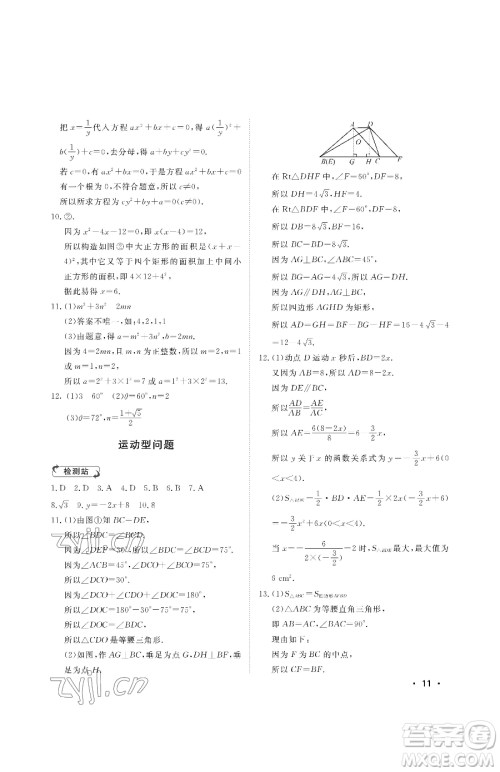 把 x=1/y 代入方程 ax²+bx+c=0，得 a(1/y)²+
b(1/y)+c=0，去分母，得 a+by+cy²=0.
若 c=0，有 ax²+bx=0，于是方程 ax²+bx+c=0 有
一个根为 0，不符合题意，所以 c≠0.
所以所求方程为 a+by+cy²=0(c≠0).
10.②.
因为 x²-4x-12=0，即 x(x-4)=12，
所以构造如图②中大正方形的面积是(x+x-
4)²，其中它又等于四个矩形的面积加上中间小
正方形的面积，即 4×12+4².
据此易得 x=6.
11.(1)m²+3n² 2mn
(2)答案不唯一，如:4,2,1,1
(3)由题意，得 a=m²+3n²,b=2mn.
因为 4=2mn，且 m,n 为正整数，所以 m=2,n=1
或 m=1,n=2.
所以 a=2²+3×1²=7 或 a=1²+3×2²=13.
12.(1)3 60° (2)存在,n=2
(3)θ=72°,n=(1+√5)/2
运动型问题
检测站
1.D 2.D 3.A 4.D 5.B 6.B 7.A
8.√3 9.y=-2x+8 10.8
11.(1)由图①知 BC=DE,
所以∠BDC=∠BCD.
因为∠DEF=30°,所以∠BDC=∠BCD=75°.
因为∠ACB=45°,
所以∠DCO=30°.
因为∠DOC=∠BDC=75°,
所以△CDO 是等腰三角形.
(2)如图，作 AG⊥BC，垂足为点 G,DH⊥BF，垂
足为点 H.
A D
O
B(E) G H C F
在 Rt△DHF 中,∠F=60°,DF=8,
所以 DH=4√3,HF=4.
在 Rt△BDF 中,∠F=60°,DF=8,
所以 DB=8√3,BF=16.
所以 BC=BD=8√3.
因为 AG⊥BC,∠ABC=45°,
所以 BG=AG=4√3,所以 AG=DH.
因为 AG⊥BC,DH⊥BF,所以 AG∥DH.
所以四边形 AGHD 为矩形,
所以 AD=GH=BF-BG-HF=16-4√3-4
=12-4√3.
12.(1)动点 D 运动 x 秒后,BD=2x.
又因为 AB=8,所以 AD=8-2x.
所以 AD/AB=AE/AC.
所以 AE=6(8-2x)/8=6-3/2x.
所以 y 关于 x 的函数关系式为 y=-3/2x+6(0
<x<4).
(2)S△BDE=1/2·BD·AE=1/2×2x(-3/2x+6)
当 x=-6/(2×(-3/2))=2 时,S△BDE最大,最大值为
6 cm².
因为 F 为 AB 的中点,
所以 CF=BF.
理由如下:
(2)△ABC 为等腰直角三角形,
即 AB=AC,∠BAC=90°.
· 11 ·
zyjl.cn
答案圈